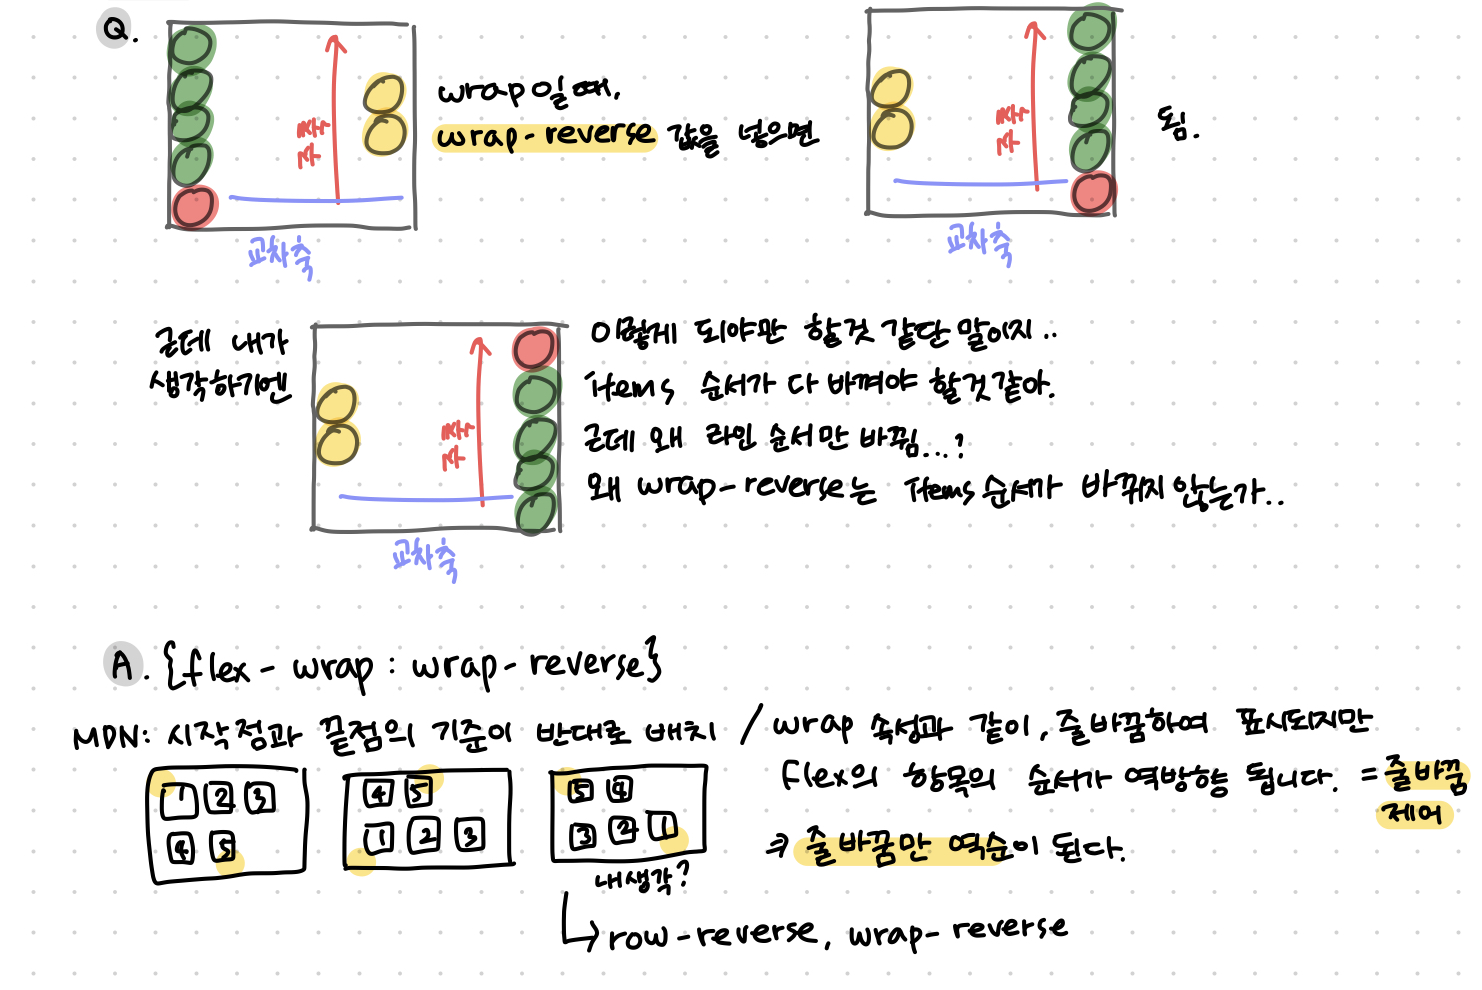 Q.
wrap일때,
wrap-reverse 값을 넣으면
됨.
교차축
교차축
근데 내가
생각하기엔
이렇게 되야만 할것 같단 말이지..
items 순서가 다 바껴야 할것같아.
근데 왜 라인 순서만 바뀜...?
왜 wrap-reverse는 items순서가 바뀌지 않는가..
교차축
A. {flex-wrap: wrap-reverse}
MDN: 시작점과 끝점의 기준이 반대로 배치 / wrap 속성과 같이, 줄바꿈하여 표시되지만
flex의 항목의 순서가 역방향 됩니다. = 줄바꿈
제어
⇒ 줄바꿈만 역순이 된다.
1 2 3
4 5
4 5
1 2 3
5 4
3 2 1
내생각?
↳ row-reverse, wrap-reverse